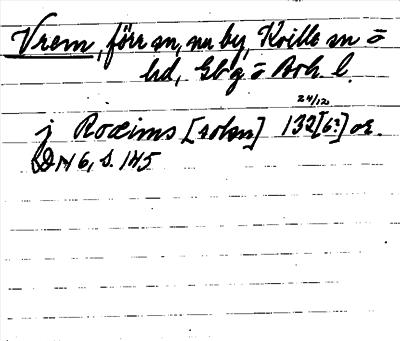 Vrem, förr sn, nu by, Kville sn o
hd, Gbg o Boh l.
24/12
j Roæims [sokn] 132[6?] or.
DN 6, s. 145